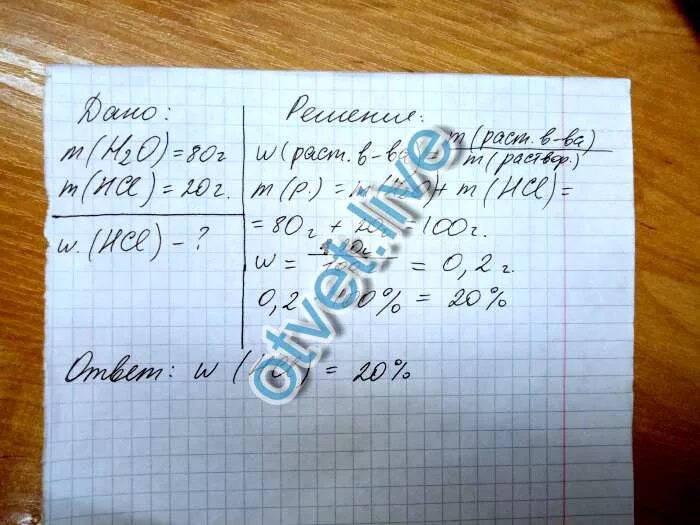 Дано:
m(H2O)=80г
m(HCl)=20г.
w.(HCl)-?
Решение:
w(раст.в-ва)=m(раст.в-ва)/m(раствор.)
m(р.)=m(H2O)+m(HCl)=
=80г+20г=100г.
w= = 0,2г.
0,2 100% = 20%
Ответ: w(HCl) = 20%
otvet.live